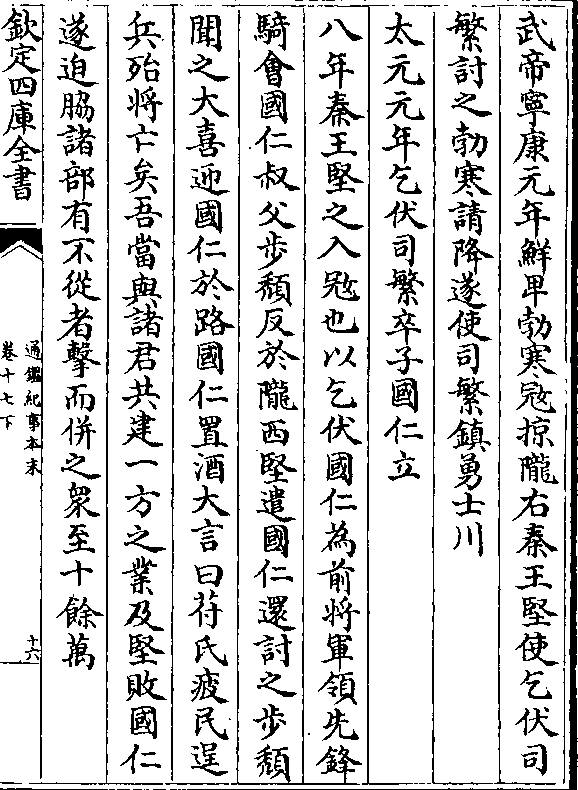 武帝寧康元年鮮卑勃寒寇掠隴右秦王堅使乞伏司
繁討之勃寒請降遂使司繁鎮勇士川
太元元年乞伏司繁卒子國仁立
八年秦王堅之入寇也以乞伏國仁為前將軍領先鋒
騎會國仁叔父步頹反於隴西堅遣國仁還討之步頹
聞之大喜迎國仁於路國仁置酒大言曰苻氏疲民逞
兵殆將亡矣吾當與諸君共建一方之業及堅敗國仁
遂迫脇諸部有不從者擊而併之衆至十餘萬
欽定四庫全書
通鑑紀事本末
卷十七下
十六